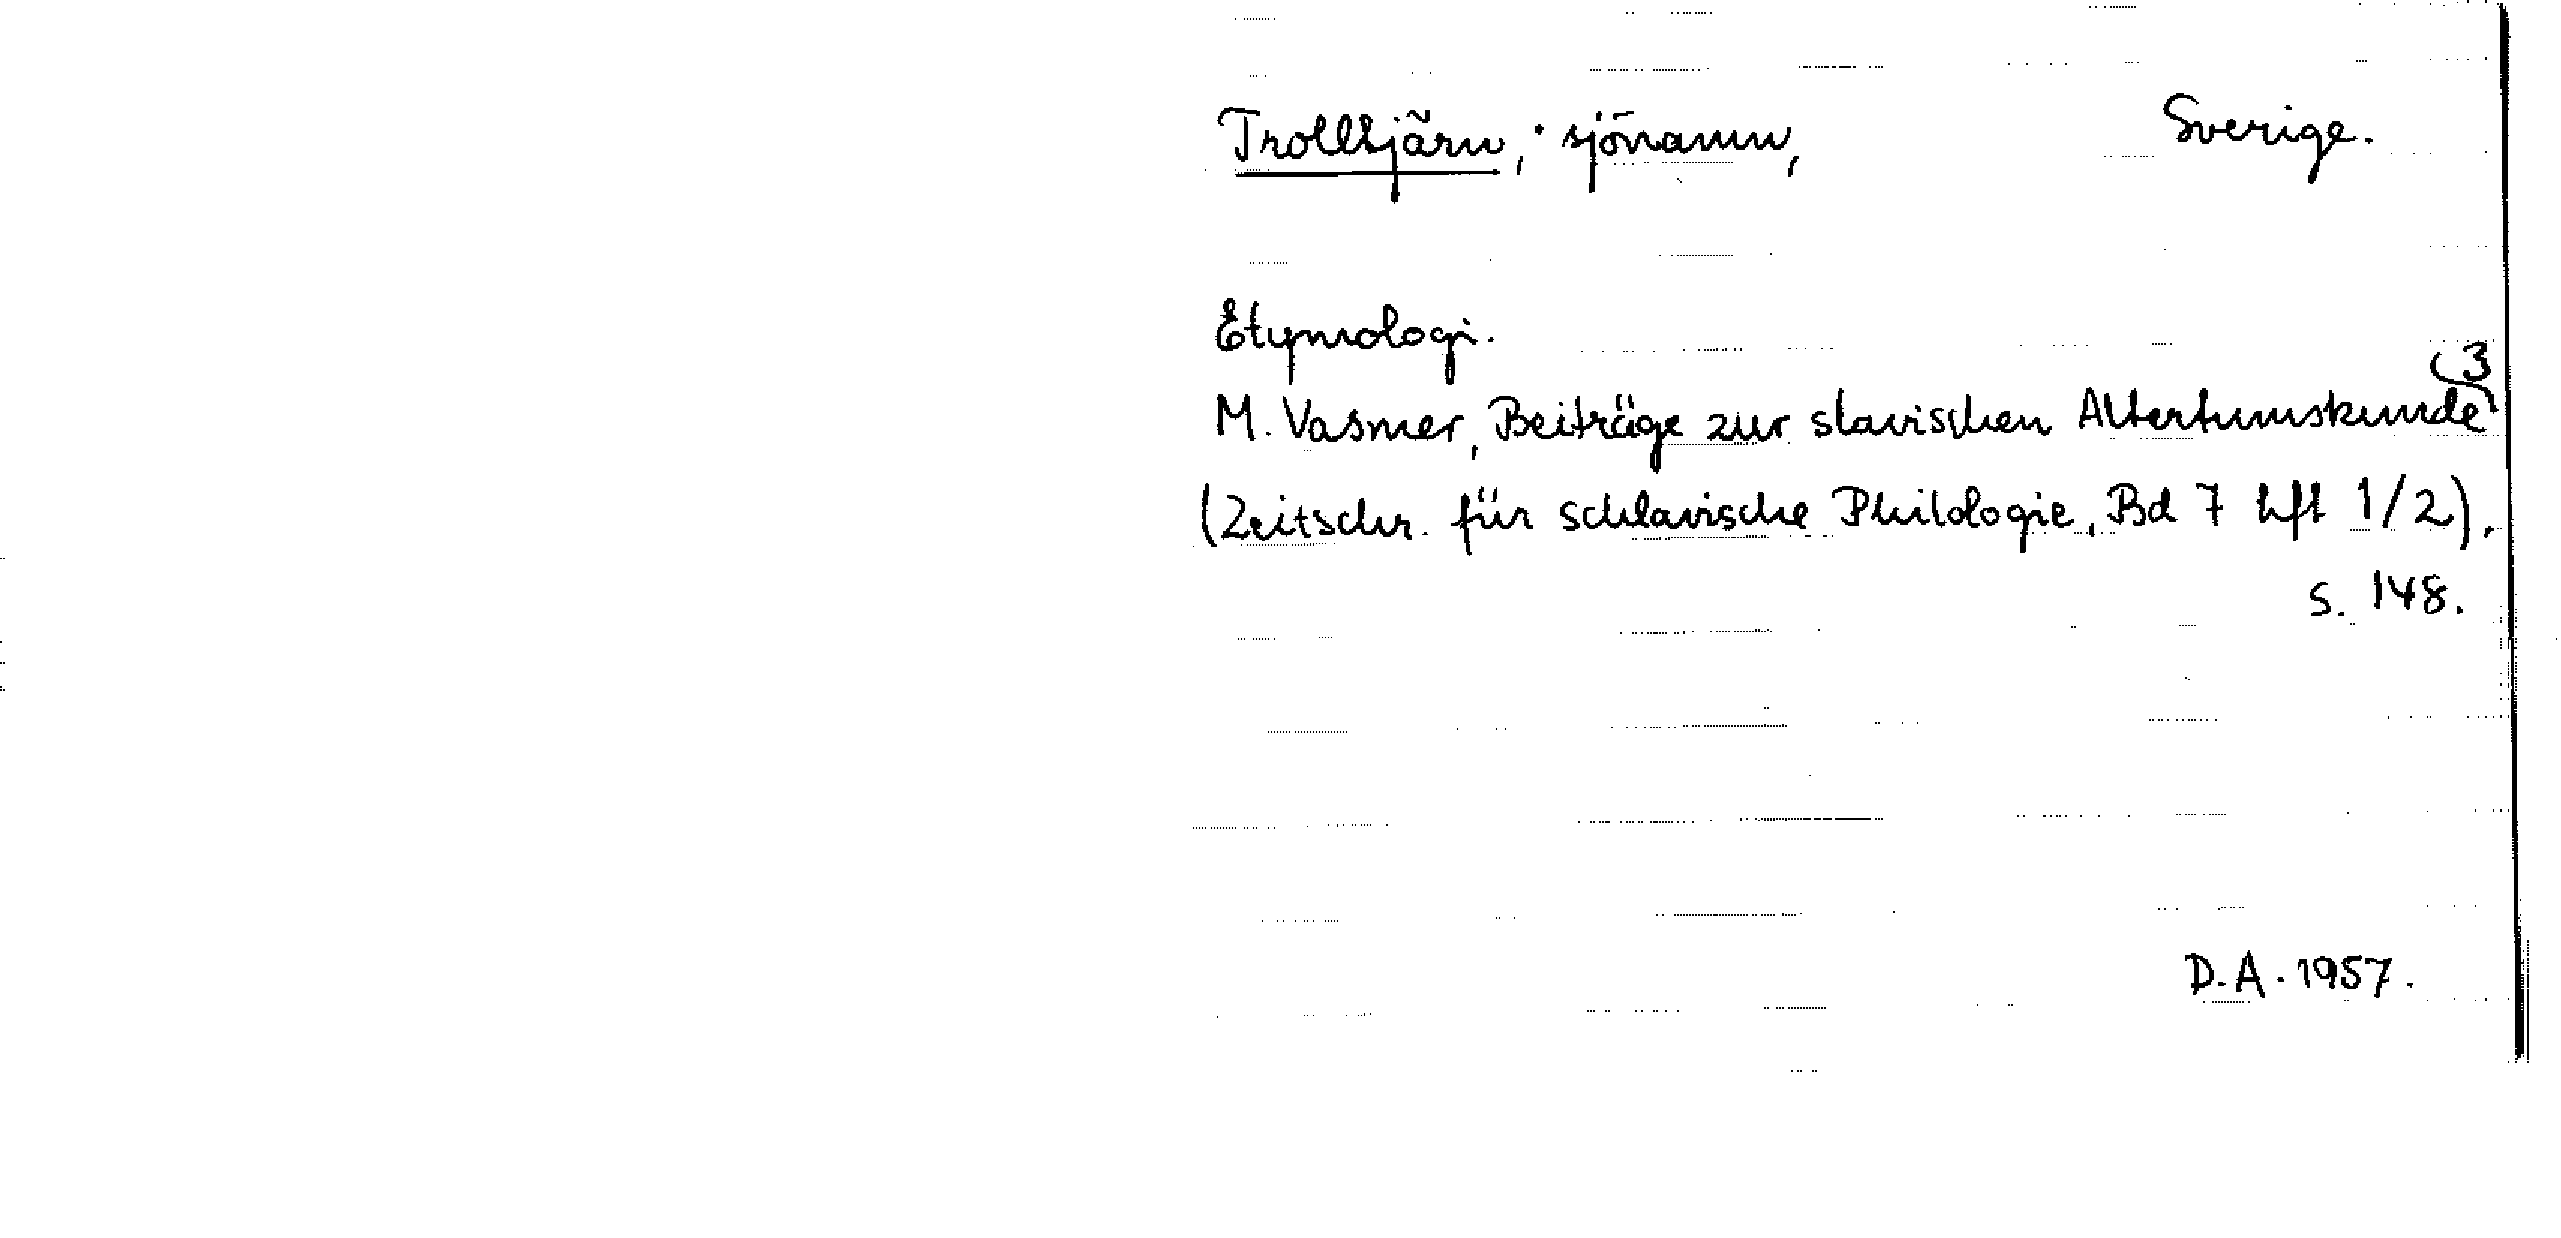 Trolltjärn, sjönamn, Sverige.
Etymologi.
M. Vasmer, Beiträge zur slavischen Altertumskunde 3
(Zeitschr. für schlavische Philologie, Bd 7 hft 1/2),
s. 148.
D.A. 1957.